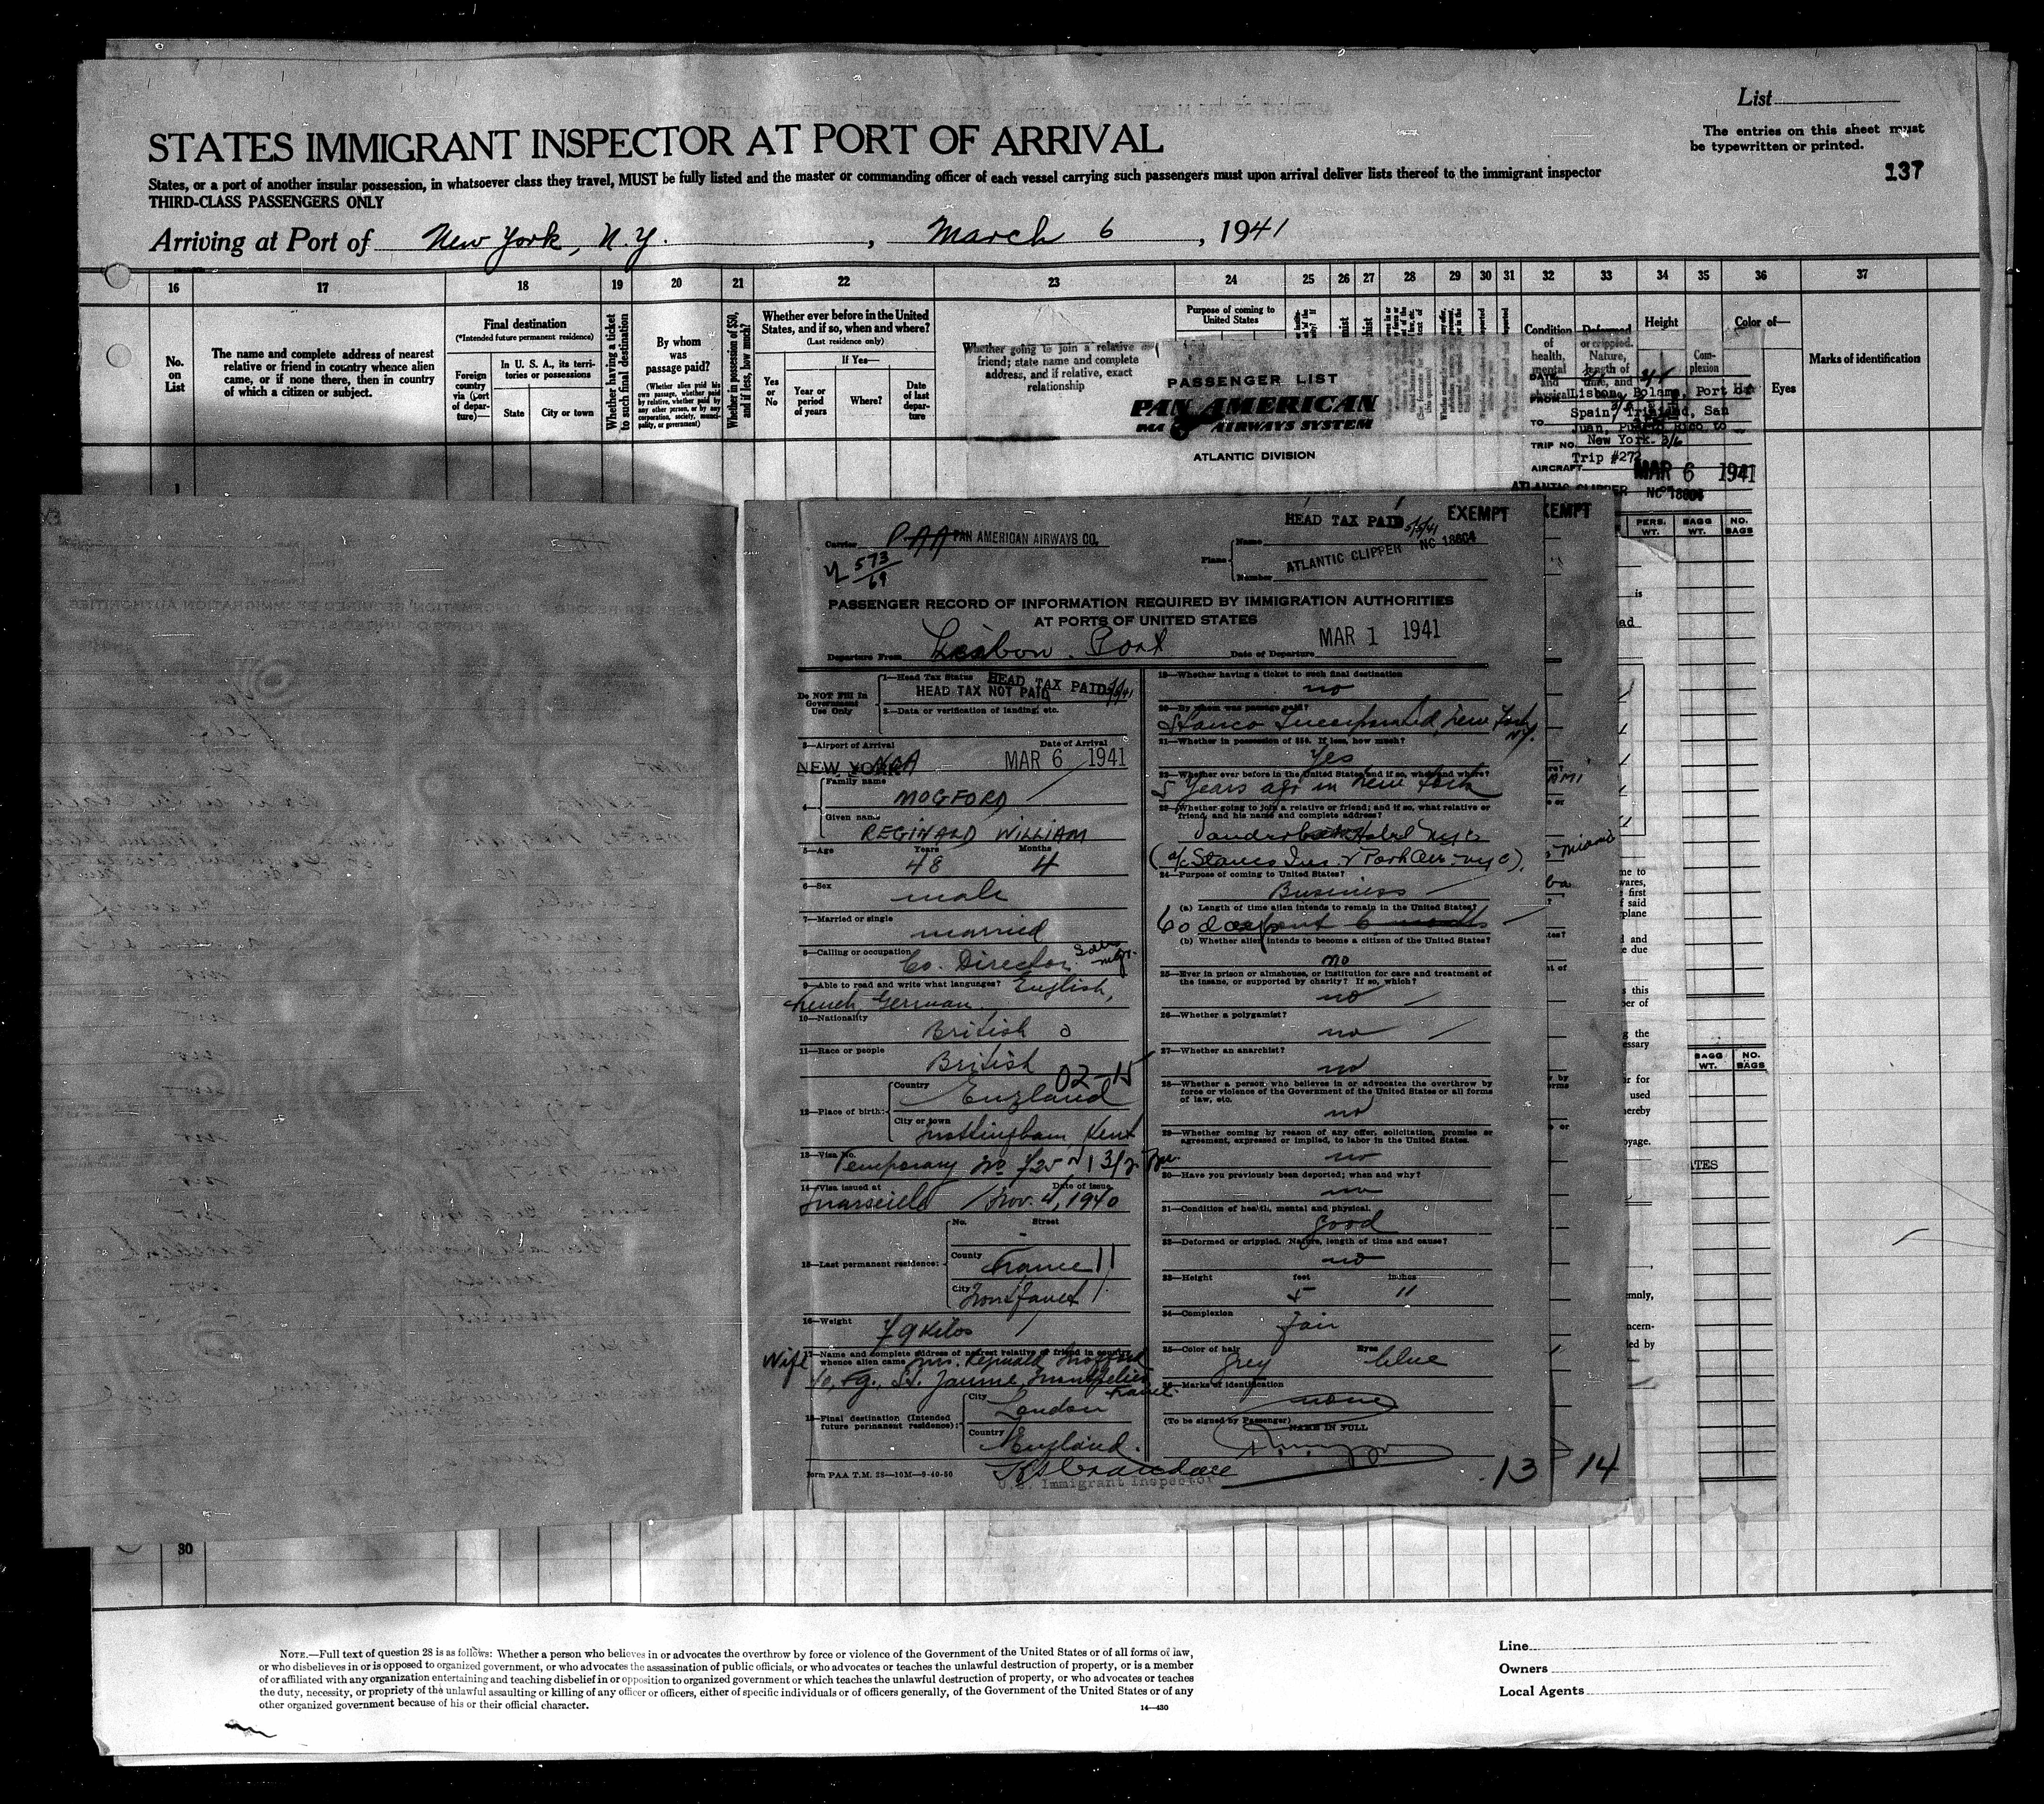 List
STATES IMMIGRANT INSPECTOR AT PORT OF ARRIVAL
The entries on this sheet must
be typewritten or printed.
137
States, or a port of another insular possession, in whatsoever class they travel, MUST be fully listed and the master or commanding officer of each vessel carrying such passengers must upon arrival deliver lists thereof to the immigrant inspector
THIRD-CLASS PASSENGERS ONLY
Arriving at Port of New York, N.Y. , March 6 , 1941
16 17 18 19 20 21 22 23 24 25 26 27 28 29 30 31 32 33 34 35 36 37
No.
on
List
The name and complete address of nearest
relative or friend in country whence alien
came, or if none there, then in country
of which a citizen or subject.
Final destination
(*Intended future permanent residence)
Foreign
country
via (port
of depar-
ture)—
In U. S. A., its terri-
tories or possessions
State City or town
Whether having a ticket
to such final destination
By whom
was
passage paid?
(Whether alien paid his
own passage, whether paid
by relative, whether paid by
any other person, or by any
corporation, society, munici-
pality, or government)
Whether in possession of $50,
and if less, how much?
Whether ever before in the United
States, and if so, when and where?
(Last residence only)
Yes
or
No
If Yes—
Year or
period
of years
Where?
Date
of last
depar-
ture
Whether going to join a relative or
friend; state name and complete
address, and if relative, exact
relationship
Purpose of coming to
United States
Condition
of
health,
mental
and
physical
Deformed
or crippled.
Nature,
length of
time, and
Height
Com-
plexion
Color of—
Eyes
Marks of identification
PASSENGER LIST
PAN AMERICAN
AIRWAYS SYSTEM
ATLANTIC DIVISION
DATE
FROM Lisbon, Bolama, Port
Spain, Trinidad, San
TO Juan, Puerto Rico to
New York 3/6
TRIP NO. Trip #272
AIRCRAFT MAR 6 1941
ATLANTIC CLIPPER NC 18604
PERS.
WT.
BAGG
WT.
NO.
BAGS
HEAD TAX PAID 5/5/41 EXEMPT
EXEMPT
Carrier PAA PAN AMERICAN AIRWAYS CO.
573
69
Plane
Name
ATLANTIC CLIPPER NC 18604
Number
PASSENGER RECORD OF INFORMATION REQUIRED BY IMMIGRATION AUTHORITIES
AT PORTS OF UNITED STATES
Departure From Lisbon. Port Date of Departure MAR 1 1941
Do NOT Fill In
Government
Use Only
1—Head Tax Status HEAD TAX PAID
HEAD TAX NOT PAID
2—Data or verification of landing, etc.
3—Airport of Arrival Date of Arrival
NEW YORK MAR 6 1941
4—
Family name
MOGFORD
Given name
REGINALD WILLIAM
5—Age Years Months
48 4
6—Sex
male
7—Married or single
married
8—Calling or occupation
Co. Director Sales mgr.
9—Able to read and write what languages? English,
French, German
10—Nationality
British
11—Race or people
British
02-15
12—Place of birth:
Country
England
City or town
Mottingham Kent
13—Visa No.
Temporary No 725
14—Visa issued at Date of issue
Marseille Nov. 4, 1940
15—Last permanent residence:
No. Street
-
County
France 11
City
16—Weight
79 Kilos
17—Name and complete address of nearest relative or friend in country
whence alien came
Wife Mrs. Reginald Mogford
St. Jaume, Montpelier
France
18—Final destination (Intended
future permanent residence):
City
London
Country
England.
Form PAA T.M. 25—10M—9-40-50
U.S. Immigrant Inspector
19—Whether having a ticket to such final destination
no
20—By whom was passage paid?
Stanco Incorporated, New York
N.Y.
21—Whether in possession of $50. If less, how much?
Yes
22—Whether ever before in the United States and if so, when and where?
5 years ago in New York
23—Whether going to join a relative or friend; and if so, what relative or
friend, and his name and complete address?
Hotel NYC
(c/o Stanco Inc. 2 Park Ave. NYC).
24—Purpose of coming to United States?
Business
(a) Length of time alien intends to remain in the United States?
60 days
(b) Whether alien intends to become a citizen of the United States?
no
25—Ever in prison or almshouse, or institution for care and treatment of
the insane, or supported by charity? If so, which?
no
26—Whether a polygamist?
no
27—Whether an anarchist?
no
28—Whether a person who believes in or advocates the overthrow by
force or violence of the Government of the United States or all forms
of law, etc.
no
29—Whether coming by reason of any offer, solicitation, promise or
agreement, expressed or implied, to labor in the United States.
no
30—Have you previously been deported; when and why?
no
31—Condition of health, mental and physical.
good
32—Deformed or crippled. Nature, length of time and cause?
no
33—Height feet inches
5 11
34—Complexion
fair
35—Color of hair Eyes
grey blue
36—Marks of identification
none
(To be signed by Passenger)
NAME IN FULL
13 14
BAGG
WT.
NO.
BAGS
30
NOTE.—Full text of question 28 is as follows: Whether a person who believes in or advocates the overthrow by force or violence of the Government of the United States or of all forms of law,
or who disbelieves in or is opposed to organized government, or who advocates the assassination of public officials, or who advocates or teaches the unlawful destruction of property, or is a member
of or affiliated with any organization entertaining and teaching disbelief in or opposition to organized government or which teaches the unlawful destruction of property, or who advocates or teaches
the duty, necessity, or propriety of the unlawful assaulting or killing of any officer or officers, either of specific individuals or of officers generally, of the Government of the United States or of any
other organized government because of his or their official character.
14—430
Line
Owners
Local Agents